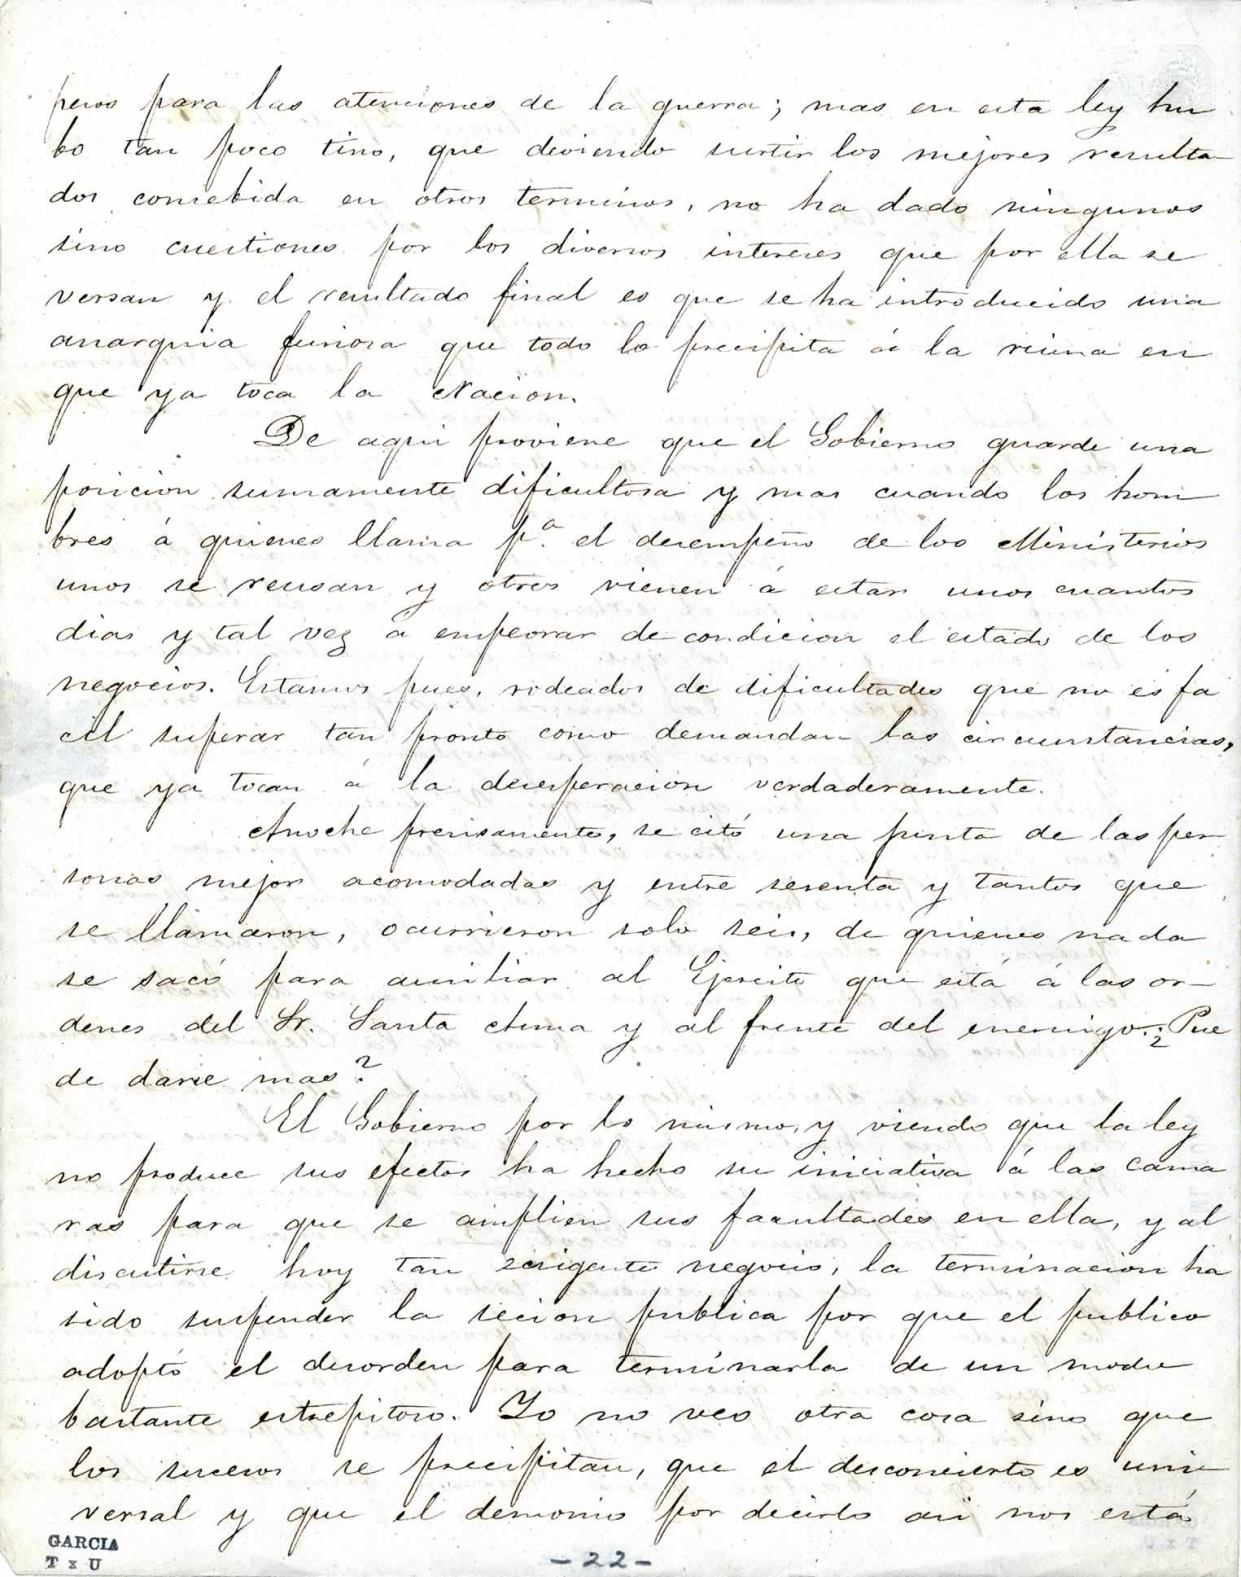 pesos para las atenciones de la guerra; mas en esta ley hu
bo tan poco tino, que deviendo surtir los mejores resulta
dos concebida en otros terminos, no ha dado ningunos
sino cuestiones por los diversos intereses que por ella se
versan y el resultado final es que se ha introducido una
anarquia furiosa que todo lo precipita á la ruina en
que ya toca la Nacion.
De aqui proviene que el Gobierno guarde una
posicion sumamente dificultosa y mas cuando los hom
bres á quienes llama pª. el desempeño de los Ministerios
unos se reusan y otros vienen á estar unos cuantos
dias y tal vez á empeorar de condicion el estado de los
negocios. Estamos pues, rodeados de dificultades que no es fa
cil superar tan pronto como demandan las circunstancias,
que ya tocan á la desesperacion verdaderamente.
Anoche precisamente, se citó una junta de las per
sonas mejor acomodadas y entre sesenta y tantos que
se llamaron, ocurrieron solo seis, de quienes nada
se sacó para auxiliar al Ejercito que está á las or-
denes del Sr. Santa Anna y al frente del enemigo. ¿Pue
de darse mas?
El Gobierno por lo mismo, y viendo que la ley
no produce sus efectos ha hecho su iniciativa á las cama
ras para que se amplien sus facultades en ella, y al
discutirse hoy tan exigente negocio, la terminacion ha
sido suspender la secion publica por que el publico
adoptó el desorden para terminarla de un modo
bastante estrepitoso. Yo no veo otra cosa sino que
los sucesos se precipitan, que el desconcierto es uni
versal y que el demonio por decirlo asi nos está
GARCIA
T x U
- 22 -